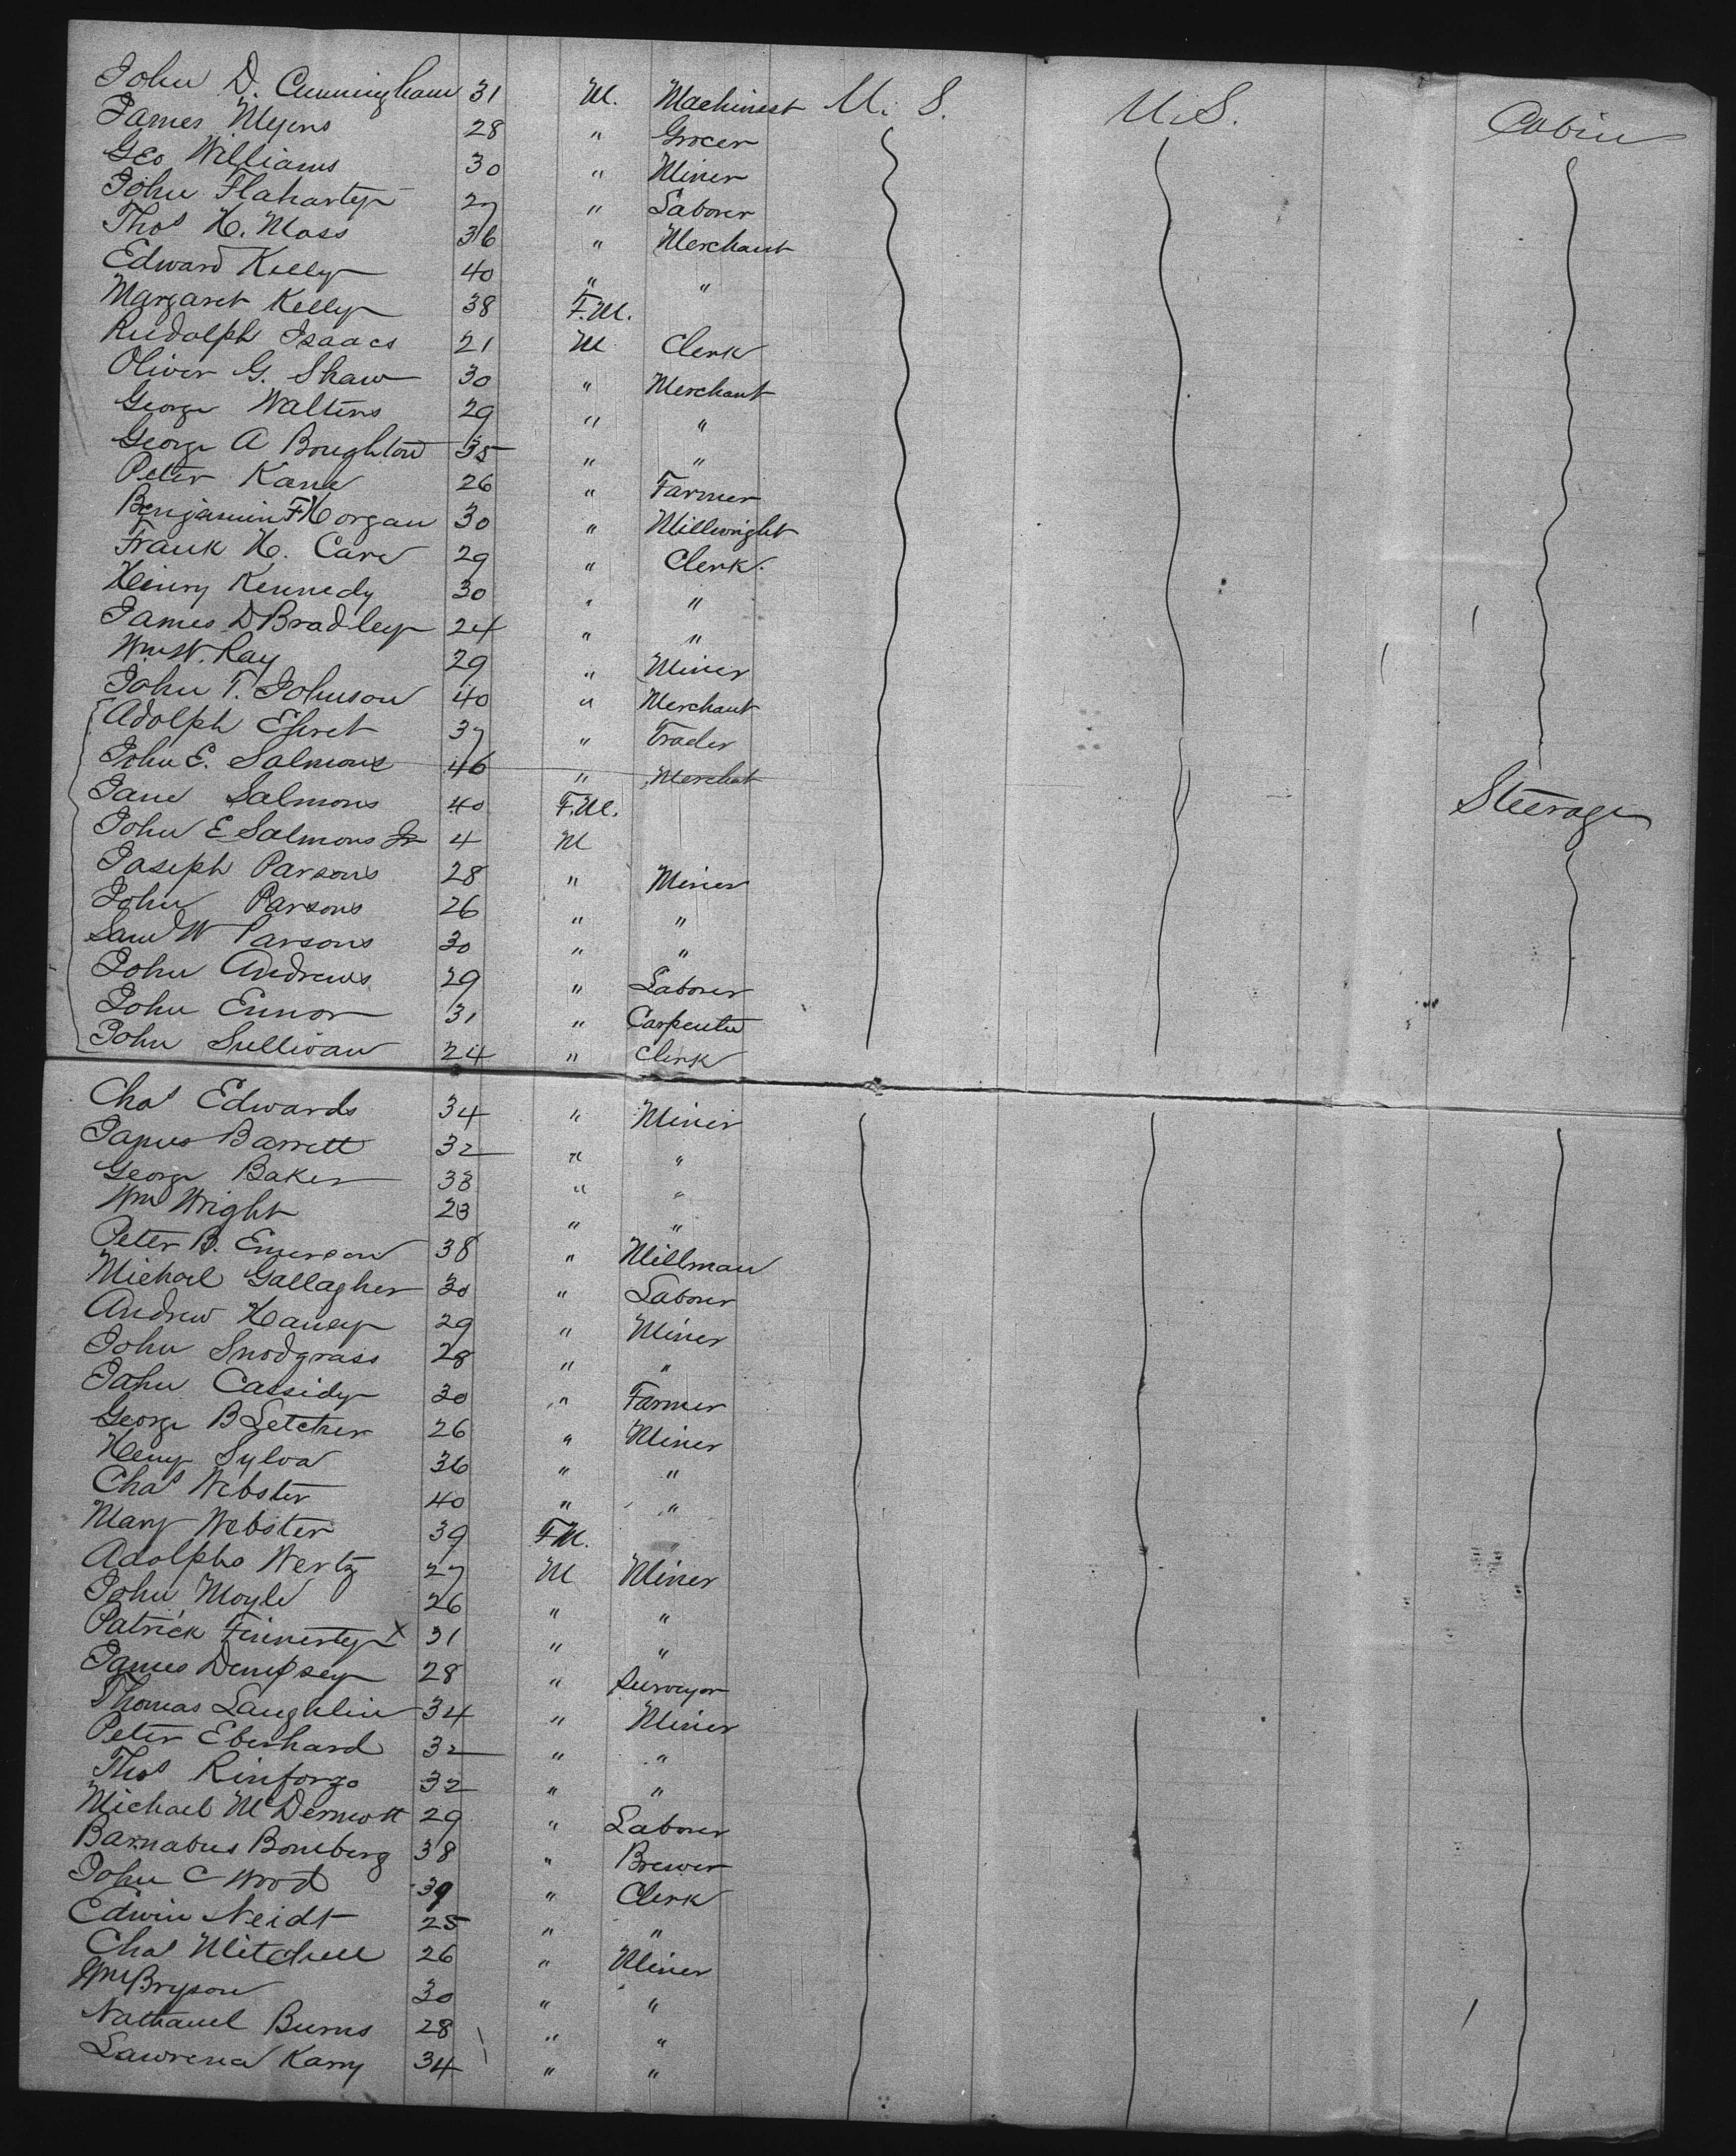 John D. Cunningham 31 M. Machinest U. S. U. S. Cabin
James Myers 28 " Grocer
Geo Williams 30 " Miner
John Flaharty 27 " Laborer
Thos H. Moss 36 " Merchant
Edward Kelly 40 " "
Margaret Kelly 38 F.M.
Rudolph Isaacs 21 M Clerk
Oliver G. Shaw 30 " Merchant
George Walters 29 " "
George A Boughton 35 " "
Peter Kane 26 " Farmer
Benjamin F Horgan 30 " Millwright
Frank H. Care 29 " Clerk.
Henry Kennedy 30 " "
James D Bradley 24 " "
Wm W. Ray 29 " Miner
John T. Johnson 40 " Merchant
Adolph 37 " Trader
John E. Salmons 46 " Merchat
Jane Salmons 40 F.M. Steerage
John E Salmons Jr 4 M
Joseph Parsons 28 " Miner
John Parsons 26 " "
Saml W Parsons 30 " "
John Andrews 29 " Laborer
John Ennor 31 " Carpenter
John Sullivan 24 " Clerk
Chas Edwards 34 " Miner
James Barrett 32 " "
George Baker 38 " "
Wm Wright 23 " "
Peter B. Emerson 38 " Millman
Michael Gallagher 30 " Laborer
Andrew Haney 29 " Miner
John Snodgrass 28 " "
John Cassidy 30 " Farmer
George B Letcher 26 " Miner
Henry Sylva 36 " "
Chas Webster 40 " "
Mary Webster 39 F.M. "
Adolpho Wertz 27 M Miner
John Moyle 26 " "
Patrick Finnerty x 31 " "
James Dempsey 28 " Surveyor
Thomas Laughlin 34 " Miner
Peter Eberhard 32 " "
Thos Rinforzo 32 " "
Michael McDermott 29 " Laborer
Barnabus Bomberg 38 " Brewer
John C Wood 39 " Clerk
Edwin Neidt 25 " "
Chas Mitchell 26 " Miner
Wm Bryson 30 " "
Nathanel Burns 28 " "
Lawrence Karry 34 " "